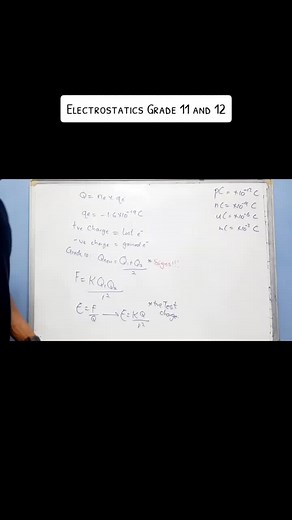 ELECTROSTATICS GRADE 11 AND 12
Q = ne × qe
qe = -1.6×10⁻¹⁹ C
+ve charge = lost e⁻
-ve charge = gained e⁻
Qnew = Q₁+Q₂ / 2 *Signs!!!
F = KQ₁Q₂ / r²
E = F/Q → E = KQ/r² *+ve Test charge
pC = ×10⁻¹² C
nC = ×10⁻⁹ C
uC = ×10⁻⁶ C
mC = ×10⁻³ C